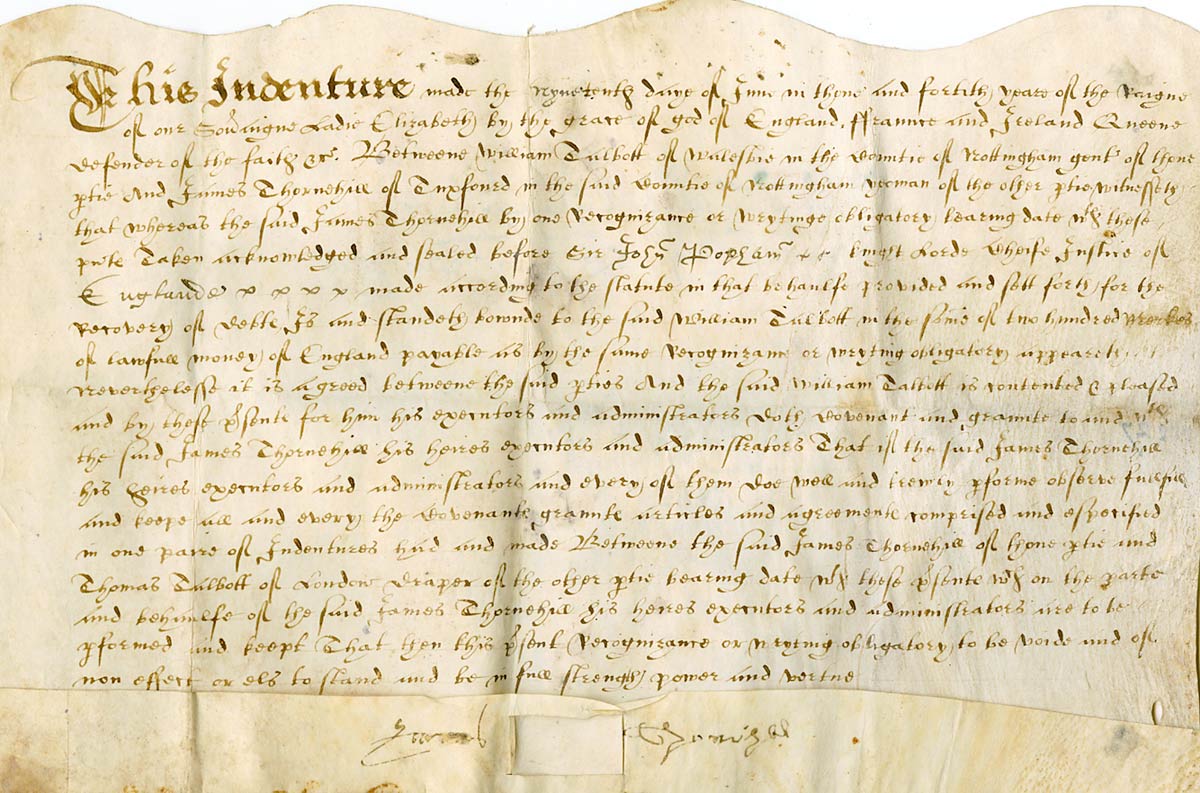 This Indenture made the Nynetenth daye of June in thone and fortith yeare of the Raigne
of our Sov'aigne Ladie Elizabeth by the grace of god of England, ffraunce and Ireland Queene
defender of the faith &c. Betweene William Talbott of Waleskie in the Countie of Nottingham gent' of thone
ptie And James Thornehill of Tuxfourd in the said Countie of Nottingham yeoman of the other ptie witnesseth
that whereas the said James Thornehill by one Recognizance or wrytinge obligatory bearing date wth these
pnte Taken acknowledged and sealed before Sir John Popham knight Lorde Cheife Justice of
Englande x x x x made according to the statute in that behaulfe provided and sett forth for the
Recovery of debte Is and standeth bownde to the said William Talbott in the some of two hundred Merkes
of lawfull money of England payable as by the same Recognizance or wryting obligatory appeareth
Neverthelesse it is agreed betweene the said pties And the said William Talbott is contented & pleased
and by these psente for him his executors and administrators doth Covenant and graunte to and wth
the said James Thornehill his heires executors and administrators That if the said James Thornehill
his heires executors and administrators and every of them doe well and trewly pforme observe fulfill
and keepe all and every the Covenante graunte articles and agreemente comprised and especified
in one paire of Indentures had and made Betweene the said James Thornehill of thone ptie and
Thomas Talbott of London draper of the other ptie bearing date wth these psente wch on the parte
and behaulfe of the said James Thornehill his heires executors and administrators are to be
pformed and keept That then this psent Recognizance or wryting obligatory to be voide and of
non effect or els to stand and be in full strength power and vertue
James Thornhill